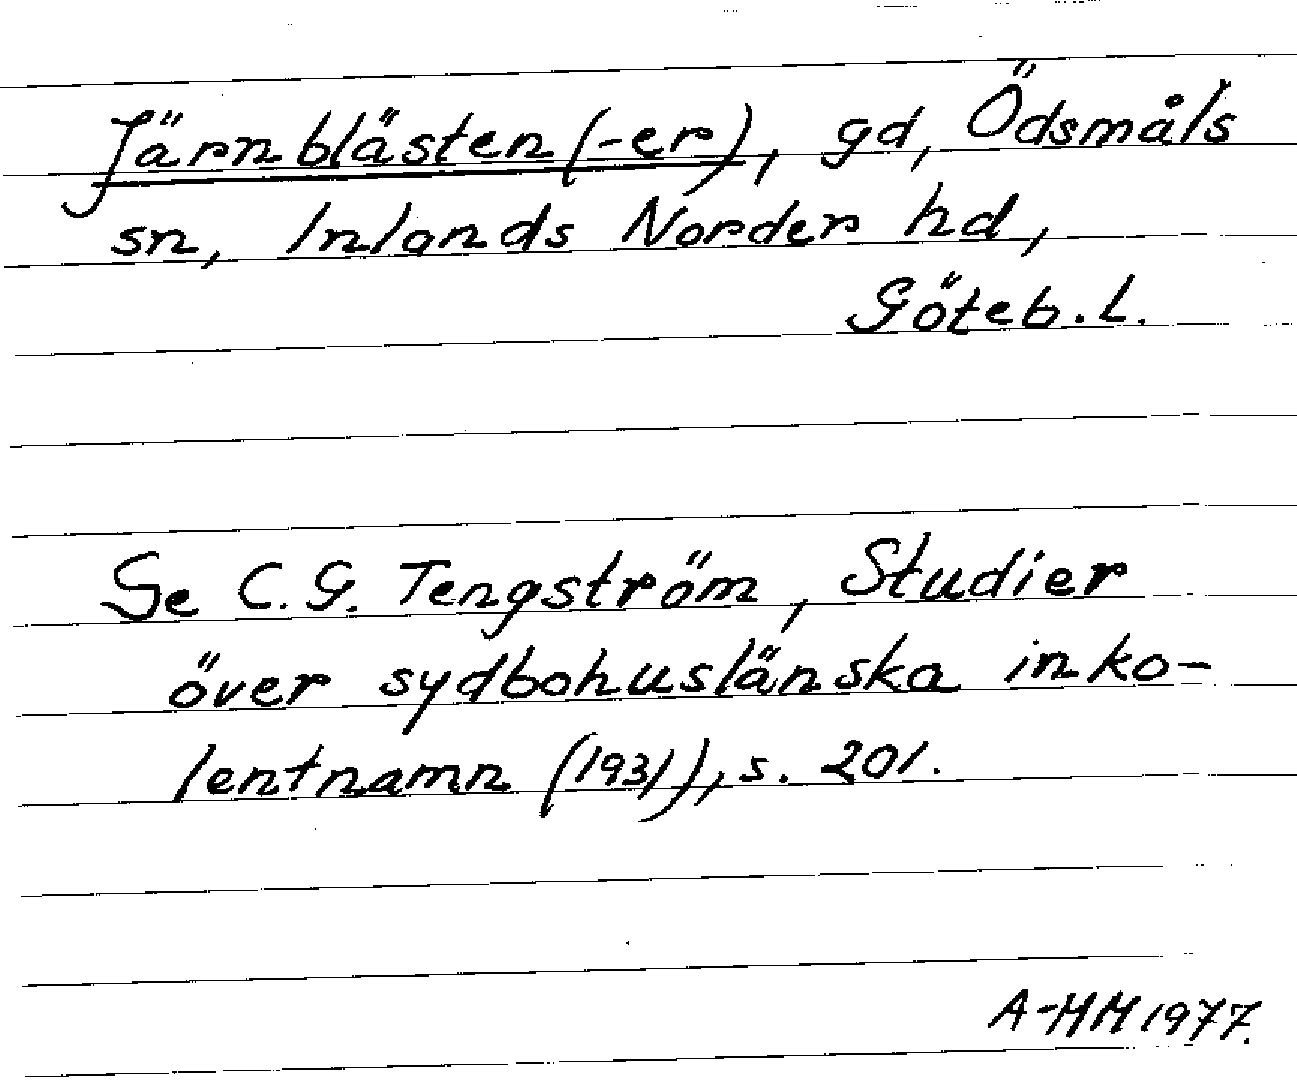 Järnblästen (-er), gd, Ödsmåls
sn, Inlands Norder hd,
Göteb. l.
Se C. G. Tengström, Studier
över sydbohuslänska inko-
lentnamn (1931), s. 201.
A-MM 1977.